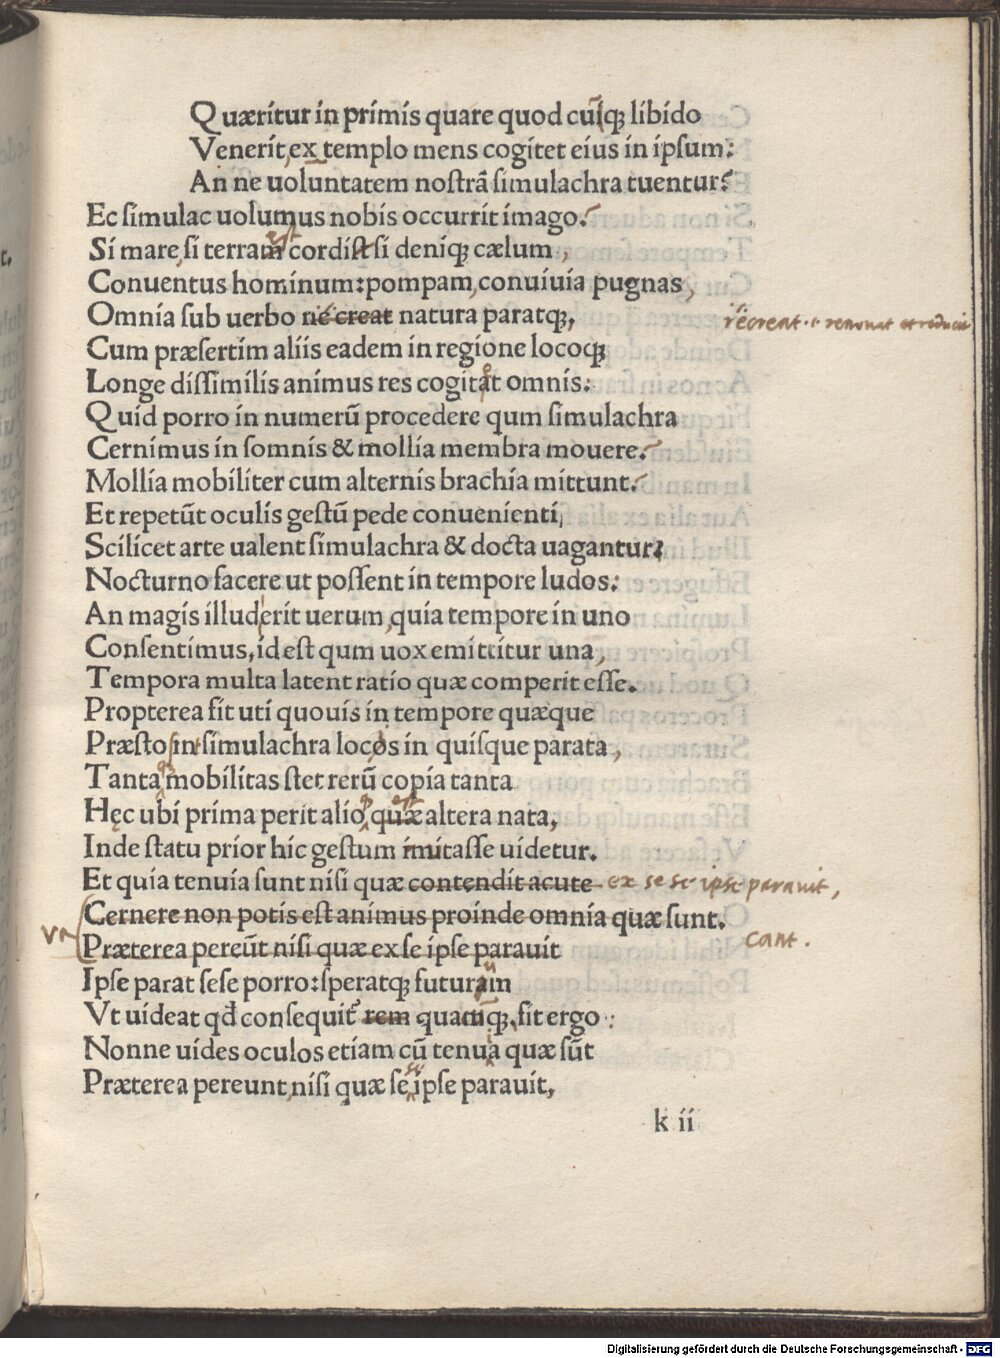 Quæritur in primis quare quod cuiqꝫ libido
Venerit, ex templo mens cogitet eius in ipsum:
An ne uoluntatem nostrā simulachra tuentur?
Ec simulac uolumus nobis occurrit imago?
Si mare, si terram cordist si deniqꝫ cælum,
Conuentus hominum: pompam, conuiuia pugnas,
Omnia sub uerbo ne creat natura paratqꝫ,
recreat
Cum præsertim aliis eadem in regione locoqꝫ
Longe dissimilis animus res cogitat omnis:
Quid porro in numerū procedere qum simulachra
Cernimus in somnis & mollia membra mouere?
Mollia mobiliter cum alternis brachia mittunt?
Et repetūt oculis gestū pede conuenienti,
Scilicet arte ualent simulachra & docta uagantur?
Nocturno facere ut possent in tempore ludos:
An magis illuderit uerum, quia tempore in uno
Consentimus, id est qum uox emittitur una,
Tempora multa latent ratio quæ comperit esse.
Propterea fit uti quouis in tempore quæque
Præsto sint simulachra locos in quisque parata,
Tanta mobilitas stet rerū copia tanta
Hęc ubi prima perit alio quæ altera nata,
Inde statu prior hic gestum imitasse uidetur.
Et quia tenuia sunt nisi quæ contendit acute ex se se ipse parauit,
Cernere non potis est animus proinde omnia quæ sunt.
cant.
Præterea pereūt nisi quæ ex se ipse parauit
Ipse parat sese porro: speratqꝫ futuram
Vt uideat qđ consequit̃ rem quamqꝫ, fit ergo:
Nonne uides oculos etiam cū tenuia quæ sūt
Præterea pereunt, nisi quæ se ipse parauit,
k ii
Digitalisierung gefördert durch die Deutsche Forschungsgemeinschaft - DFG